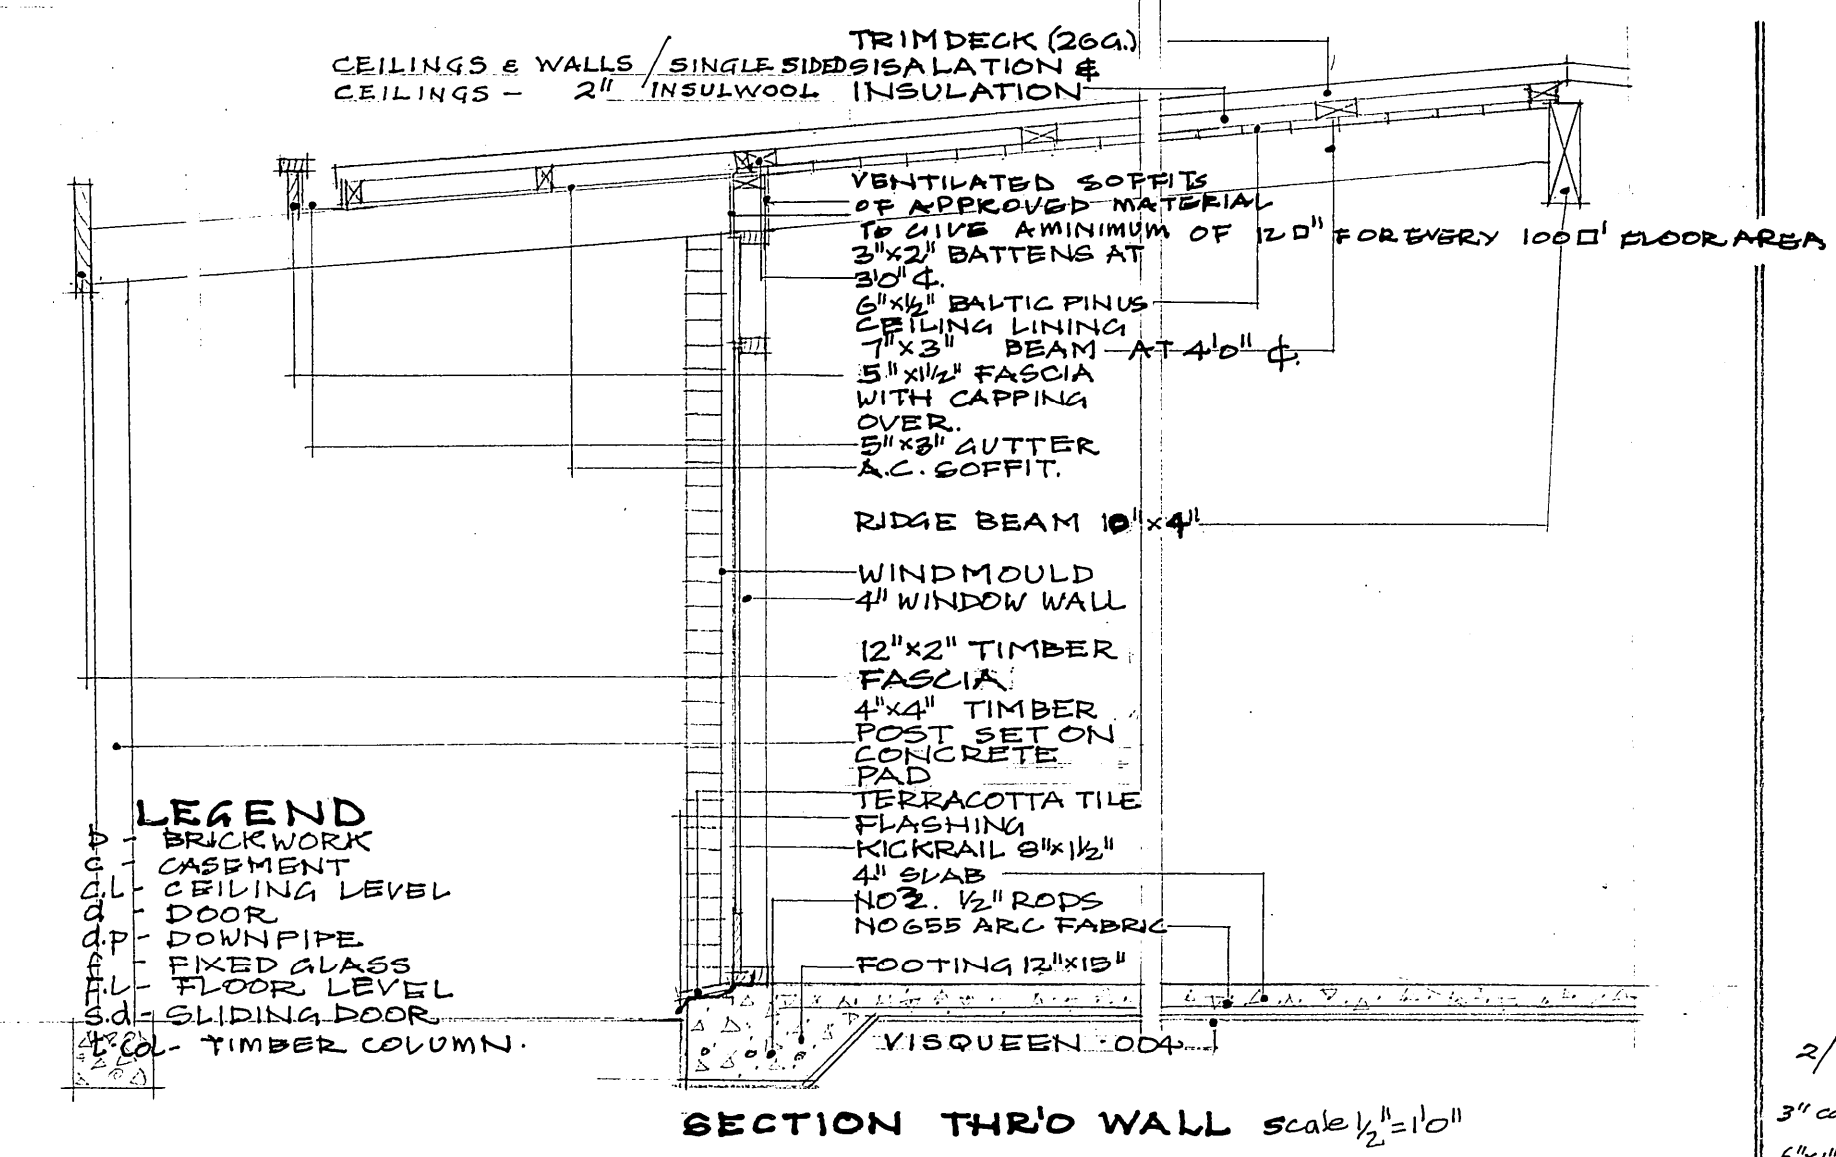 TRIMDECK (26G.)
CEILINGS & WALLS / SINGLE SIDED SISALATION &
CEILINGS - 2" INSULWOOL INSULATION
VENTILATED SOFFITS
OF APPROVED MATERIAL
TO GIVE A MINIMUM OF 12□" FOR EVERY 100□' FLOOR AREA
3"x2" BATTENS AT
3'0" ℄.
6"x½" BALTIC PINUS
CEILING LINING
7"x3" BEAM AT 4'0" ℄.
5"x1½" FASCIA
WITH CAPPING
OVER.
5"x3" GUTTER
A.C. SOFFIT.
RIDGE BEAM 10"x4"
WINDMOULD
4" WINDOW WALL
12"x2" TIMBER
FASCIA
4"x4" TIMBER
POST SET ON
CONCRETE
PAD
TERRACOTTA TILE
FLASHING
KICKRAIL 8"x1½"
4" SLAB
NO 2. ½" RODS
NO 655 ARC FABRIC
FOOTING 12"x15"
VISQUEEN .004
LEGEND
b - BRICKWORK
c - CASEMENT
c.L - CEILING LEVEL
d - DOOR
d.p - DOWNPIPE
f - FIXED GLASS
F.L - FLOOR LEVEL
s.d - SLIDING DOOR
t.col - TIMBER COLUMN.
SECTION THR'O WALL scale ½"=1'0"
2/
3"